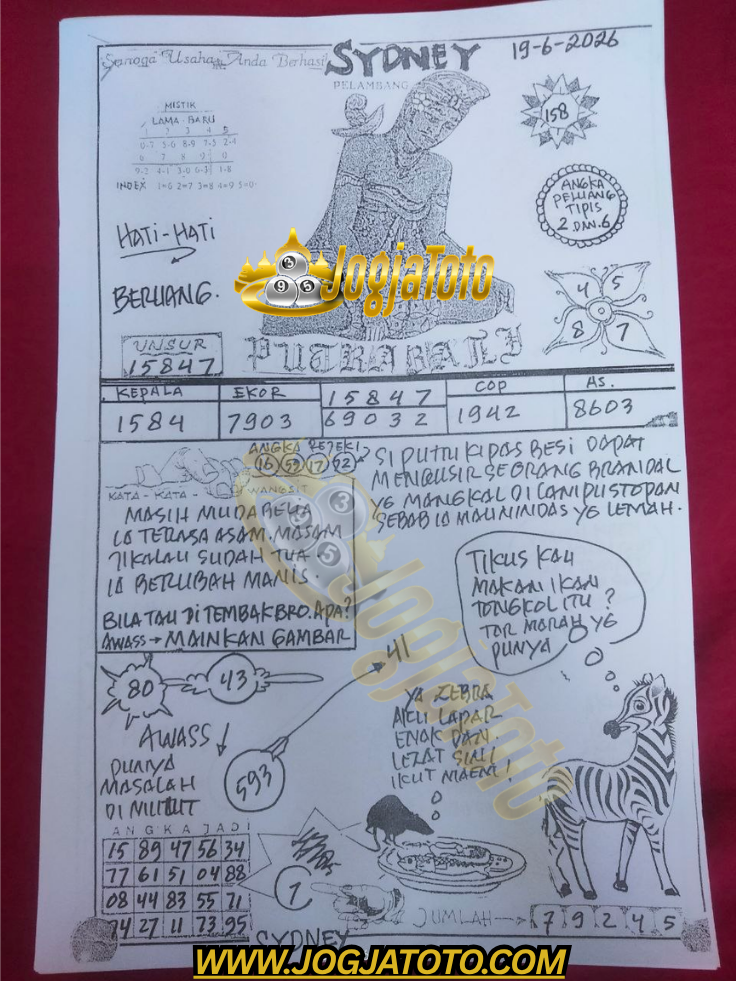 Semoga Usaha Anda Berhasil
SYDNEY
19-6-2026
PELAMBANG
MISTIK
LAMA - BARU
1 2 3 4 5
0-7 5-6 8-9 7-5 2-4
6 7 8 9 0
9-2 4-1 3-0 6-3 1-8
INDEX 1=6 2=7 3=8 4=9 5=0
158
ANGKA
PELUANG
TIPIS
2 DAN 6
HATI-HATI
BERUANG.
4 5
8 7
JogjaToto
PUTRA BALI
UNSUR
15847
KEPALA EKOR 15847 COP AS.
1584 7903 69032 1942 8603
ANGKA REJEKI
16 17
KATA - KATA - WANGSIT
MASIH MUDA BELIA
IA TERASA ASAM. MASAM
JIKALAU SUDAH TUA.
IA BERUBAH MANIS.
BILA TAU DITEMBAK BRO. APA?
AWASS → MAINKAN GAMBAR
SI PUTRI KIPAS BESI DAPAT
MENGUSIR SEORANG BRANDAL
YG MANGKAL DI STOPAN
SEBAB IA MAU NINDAS YG LEMAH.
TIKUS KAU
MAKAN IKAN
TONGKOL ITU?
TAR MARAH YG
PUNYA
JogjaToto
80
43
41
AWASS
PUNYA
MASALAH
DI
593
YA ZEBRA
AKU LAPAR
ENAK DAN
LEZAT SINI
IKUT MAEM!
ANGKA JADI
15 89 47 56 34
77 61 51 04 88
08 44 83 55 71
74 27 11 73 95
7
SYDNEY
JUMLAH → 7 9 2 4 5
WWW.JOGJATOTO.COM